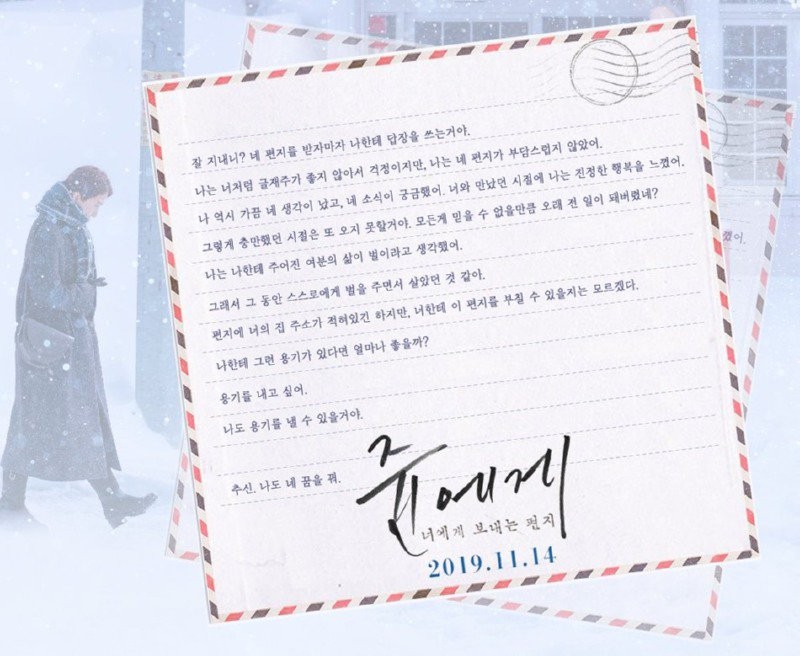 잘 지내니? 네 편지를 받자마자 나한테 답장을 쓰는거야.
나는 너처럼 글재주가 좋지 않아서 걱정이지만, 나는 네 편지가 부담스럽지 않았어.
나 역시 가끔 네 생각이 났고, 네 소식이 궁금했어. 너와 만났던 시절에 나는 진정한 행복을 느꼈어.
그렇게 충만했던 시절은 또 오지 못할거야. 모든게 믿을 수 없을만큼 오래 전 일이 돼버렸네?
나는 나한테 주어진 여분의 삶이 벌이라고 생각했어.
그래서 그 동안 스스로에게 벌을 주면서 살았던 것 같아.
편지에 너의 집 주소가 적혀있긴 하지만, 너한테 이 편지를 부칠 수 있을지는 모르겠다.
나한테 그런 용기가 있다면 얼마나 좋을까?
용기를 내고 싶어.
나도 용기를 낼 수 있을거야.
추신. 나도 네 꿈을 꿔.
윤에게
너에게 보내는 편지
2019.11.14
꼈어.